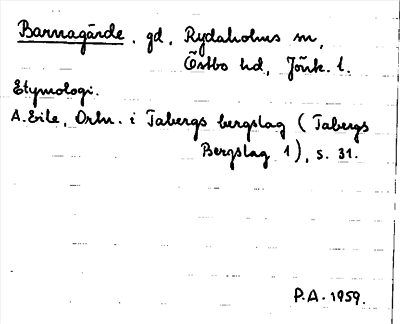 Barnagärde. gd, Rydaholms sn,
Östbo hd, Jönk. l.
Etymologi.
A. Eile, Ortn. i Tabergs bergslag (Tabergs
Bergslag 1), s. 31.
P.A. 1959.